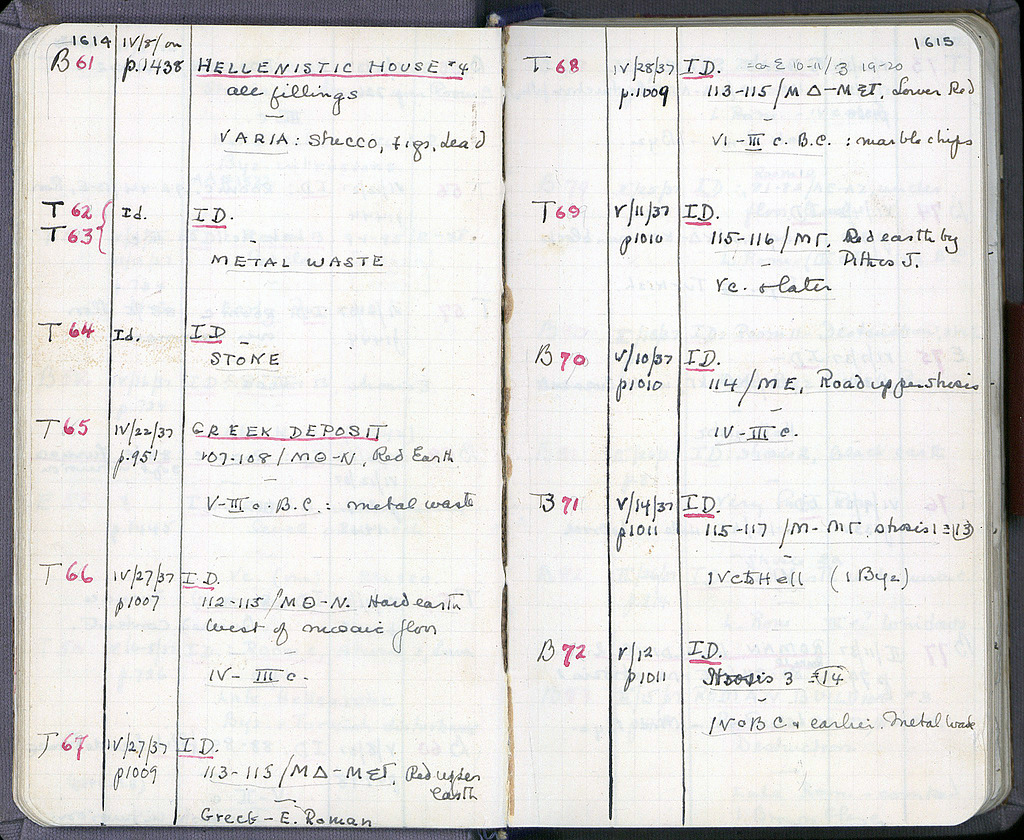 1614
IV/8/on
B 61 p.1438 HELLENISTIC HOUSE #4
all fillings
VARIA: Stucco, figs, lead
T 62 Id. I D.
T 63
METAL WASTE
T 64 Id. I D
STONE
T 65 IV/22/37 GREEK DEPOSIT
p.951 107-108/MΘ-N, Red Earth
V-III c. B.C.: metal waste
T 66 IV/27/37 I D.
p1007 112-115/MΘ-N. Hard earth
West of mosaic floor
IV-III c.
T 67 IV/27/37 I D.
p1009 113-115/MΔ-MΣΤ, Red upper
earth
Greek-E. Roman
1615
T 68 IV/28/37 I D. = a Σ 10-11/ 19-20
p.1009 113-115/MΔ-MΣΤ, Lower Red
VI-III c. B.C.: marble chips
T 69 V/11/37 I D.
p1010 115-116/MΓ, Red earth by
Pithos J.
V c. & later
B 70 V/10/37 I D.
p1010 114/ME, Road upper stosis
IV-III c.
B 71 V/14/37 I D.
p1011 115-117/M-MΓ. stosis 1 = 13
IV c to Hell (1 Byz)
B 72 V/12 I D.
p1011 Stosis 3 = 14
IV c B C & earlier. Metal waste